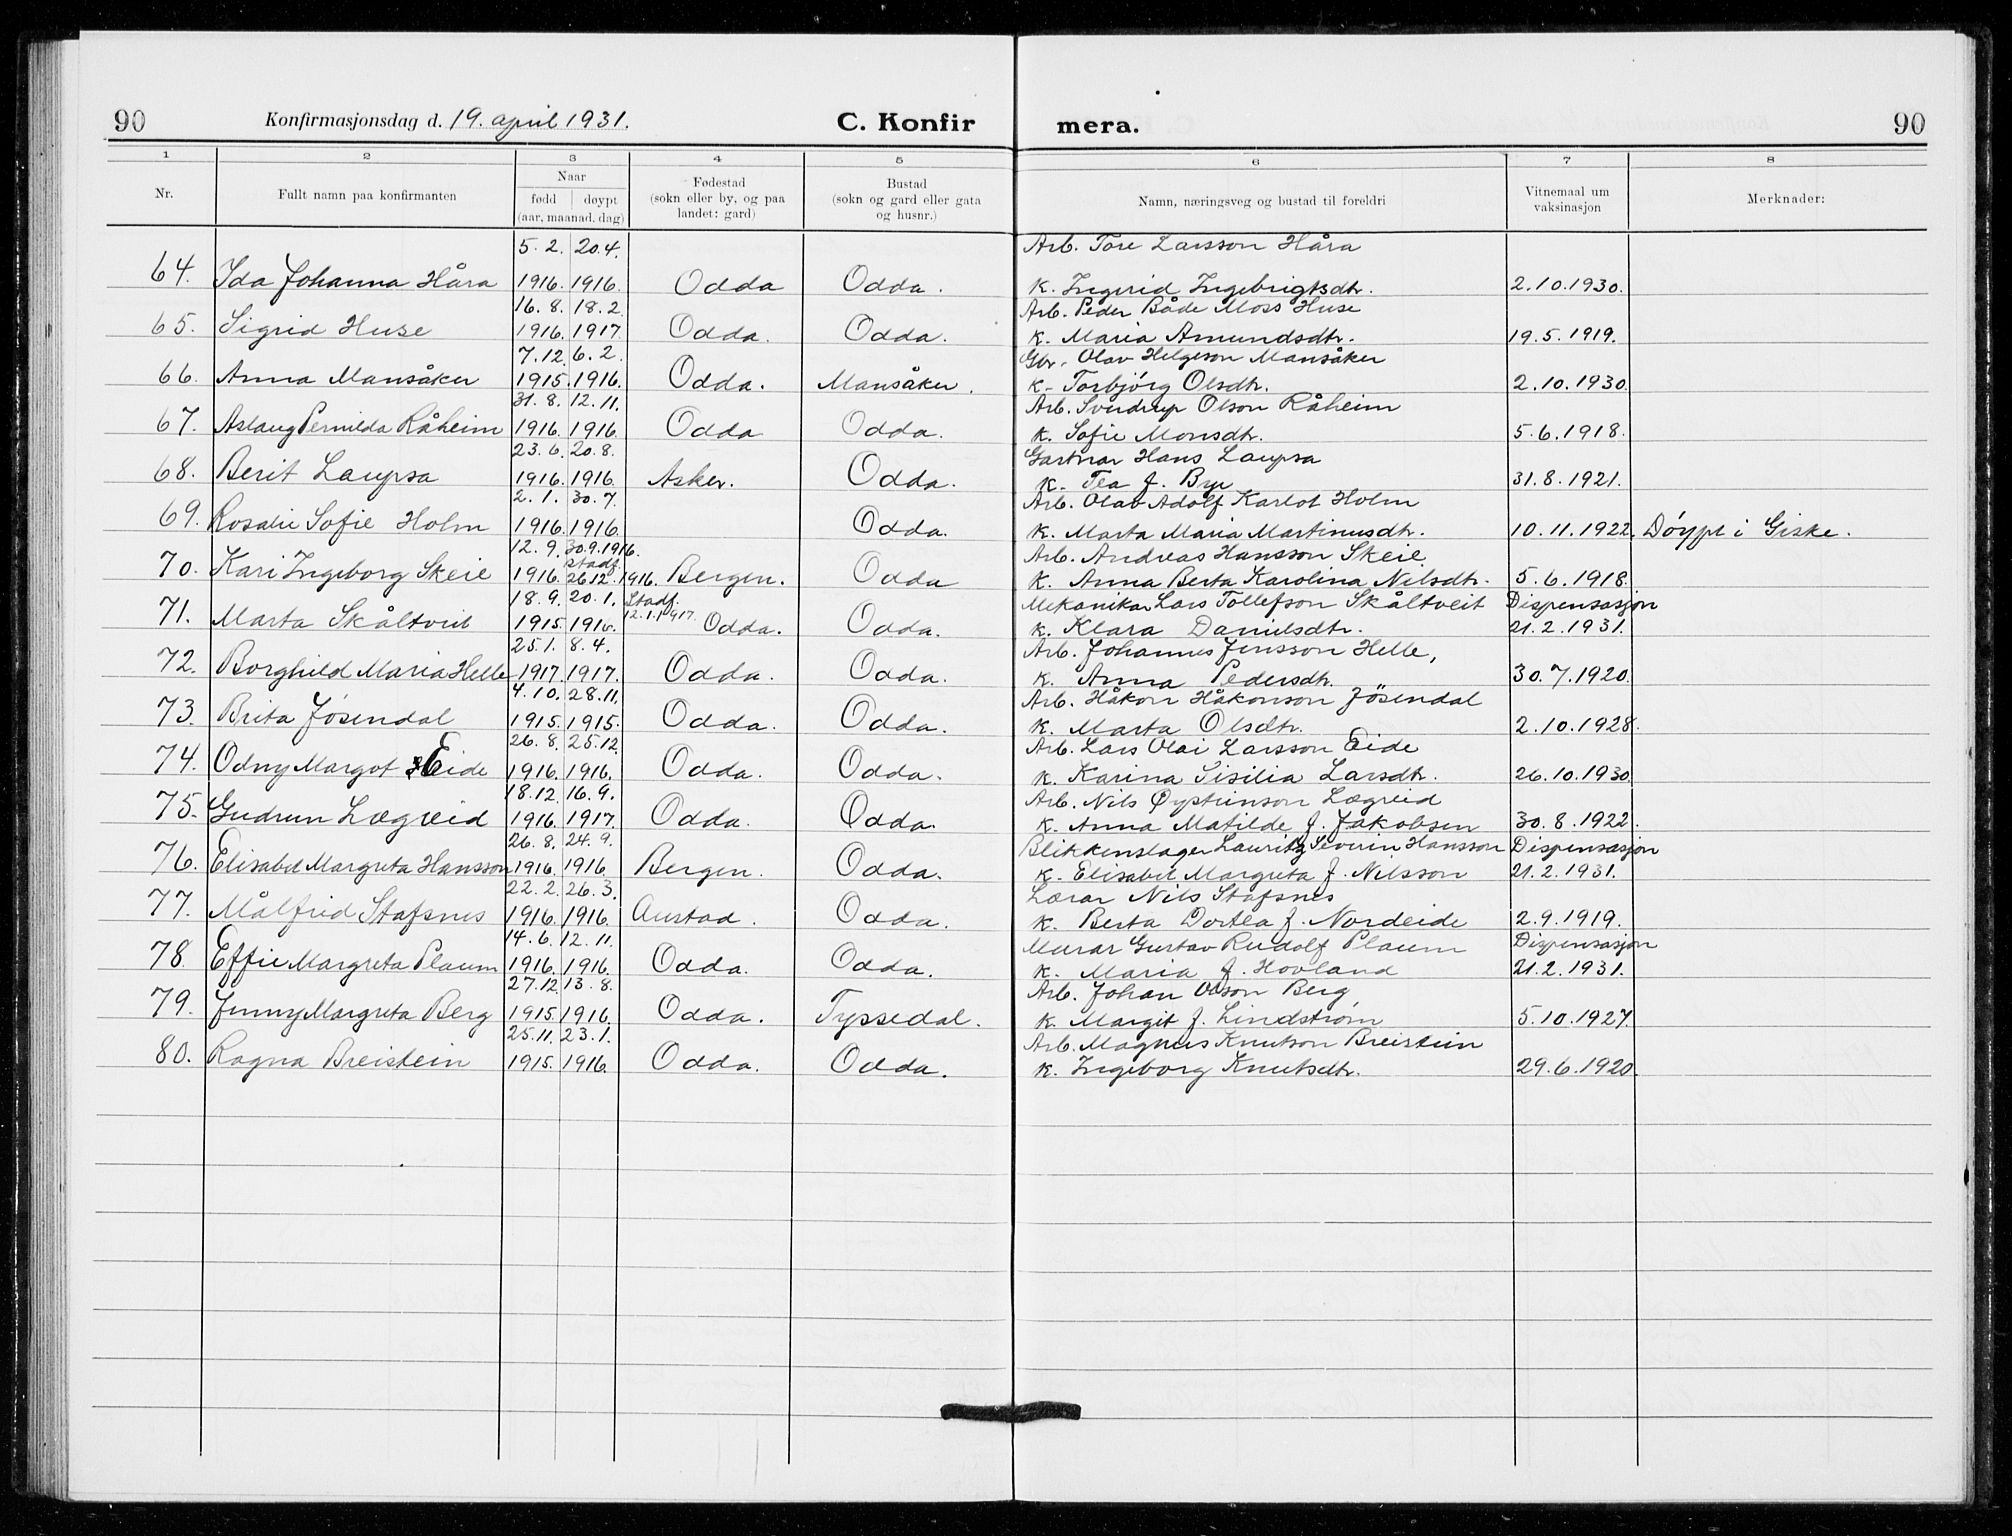 90 Konfirmasjonsdag d. 19. april 1931. C. Konfir mera. 90
1 2 3 4 5 6 7 8
Nr. Fullt namn paa konfirmanten Naar Fødestad Bustad Namn, næringsveg og bustad til foreldri Vitnemaal um Merknader:
fødd døypt (sokn eller by, og paa (sokn og gard eller gata vaksinasjon
(aar, maanad, dag) landet: gard) og husnr.)
5. 2. 20.4. Arb. Tore Larsson Håra
64. Ida Johanna Håra 1916. 1916. Odda Odda. K. Ingerid Ingebrigtsdtr. 2.10.1930.
16. 8. 18. 2. Arb. Peder Både Moss Huse
65. Sigrid Huse 1916. 1917. Odda. Odda. K. Maria Amundsdtr. 19.5.1919.
7.12. 6. 2. Gbr. Olav Helgeson Mansåker
66. Anna Mansåker 1915. 1916. Odda. Mansåker. K. Torbjörg Olsdtr. 2.10.1930.
31. 8. 12. 11. Arb. Sverdrup Olson Råheim
67. Aslaug Pernilda Råheim 1916. 1916. Odda Odda. K. Sofie Monsdtr. 5.6.1918.
23. 6. 20. 8. Gartnar Hans Laupsa
68. Berit Laupsa 1916. 1916. Asker. Odda. K. Tea f. Bye 31.8.1921.
2. 1. 30. 7. Arb. Olav Adolf Karlot Holm
69. Rosalie Sofie Holm 1916. 1916. Odda. K. Marta Maria Martinusdtr. 10.11.1922. Döypt i Giske.
12. 9. 30.9.1916. Arb. Andreas Hansson Skeie.
stadf.
70. Kari Ingeborg Skeie 1916. 26.12.1916. Bergen. Odda K. Anna Berta Karolina Nilsdtr. 5.6.1918.
18. 9. 20. 1. Stadf. Mekanikar Lars Tollefson Skåltveit Dispensasjon
71. Marta Skåltveit 1915. 1916. 12.1.1917. Odda. Odda. K. Klara Danielsdtr. 21.2.1931.
25. 1. 8. 4. Arb. Johannes Jensson Helle,
72. Borghild Maria Helle 1917. 1917. Odda. Odda. K. Anna Pedersdtr. 30.7.1920.
4. 10. 28. 11. Arb. Håkon Håkonson Jösendal
73. Brita Jösendal 1915. 1915. Odda. Odda. K. Marta Olsdtr. 2.10.1928.
26. 8. 25.12. Arb. Lars Olai Larsson Eide
74. Odny Margot Eide 1916. 1916. Odda. Odda. K. Karina Sisilia Larsdtr. 26.10.1930.
18. 12. 16. 9. Arb. Nils Øysteinson Lægreid
75. Gudrun Lægreid 1916. 1917. Odda. Odda. K. Anna Matilde f. Jakobsen 30.8.1922.
26. 8. 24. 9. Blikkenslager Lauritz Severin Hansson Dispensasjon
76. Elisabet Margreta Hansson 1916. 1916 Bergen. Odda. K. Elisabet Margreta f. Nilsson 21.2.1931.
22. 2. 26. 3. Lærar Nils Stafsnes
77. Målfrid Stafsnes 1916. 1916. Aurstad. Odda. K. Berta Dortea f. Nordeide 2.9.1919.
14. 6. 12. 11. Murar Gustav Rudolf Plaum Dispensasjon
78. Effie Margreta Plaum 1916. 1916. Odda. Odda. K. Maria f. Hovland 21.2.1931.
27.12. 13. 8. Arb. Johan Olson Berg
79. Jenny Margreta Berg 1915. 1916. Odda. Tyssedal. K. Margit f. Lindström 5.10.1927.
25.11. 23. 1. Arb. Magnus Knutson Breistein
80. Ragna Breistein 1915. 1916. Odda. Odda. K. Ingeborg Knutsdtr. 29.6.1920.